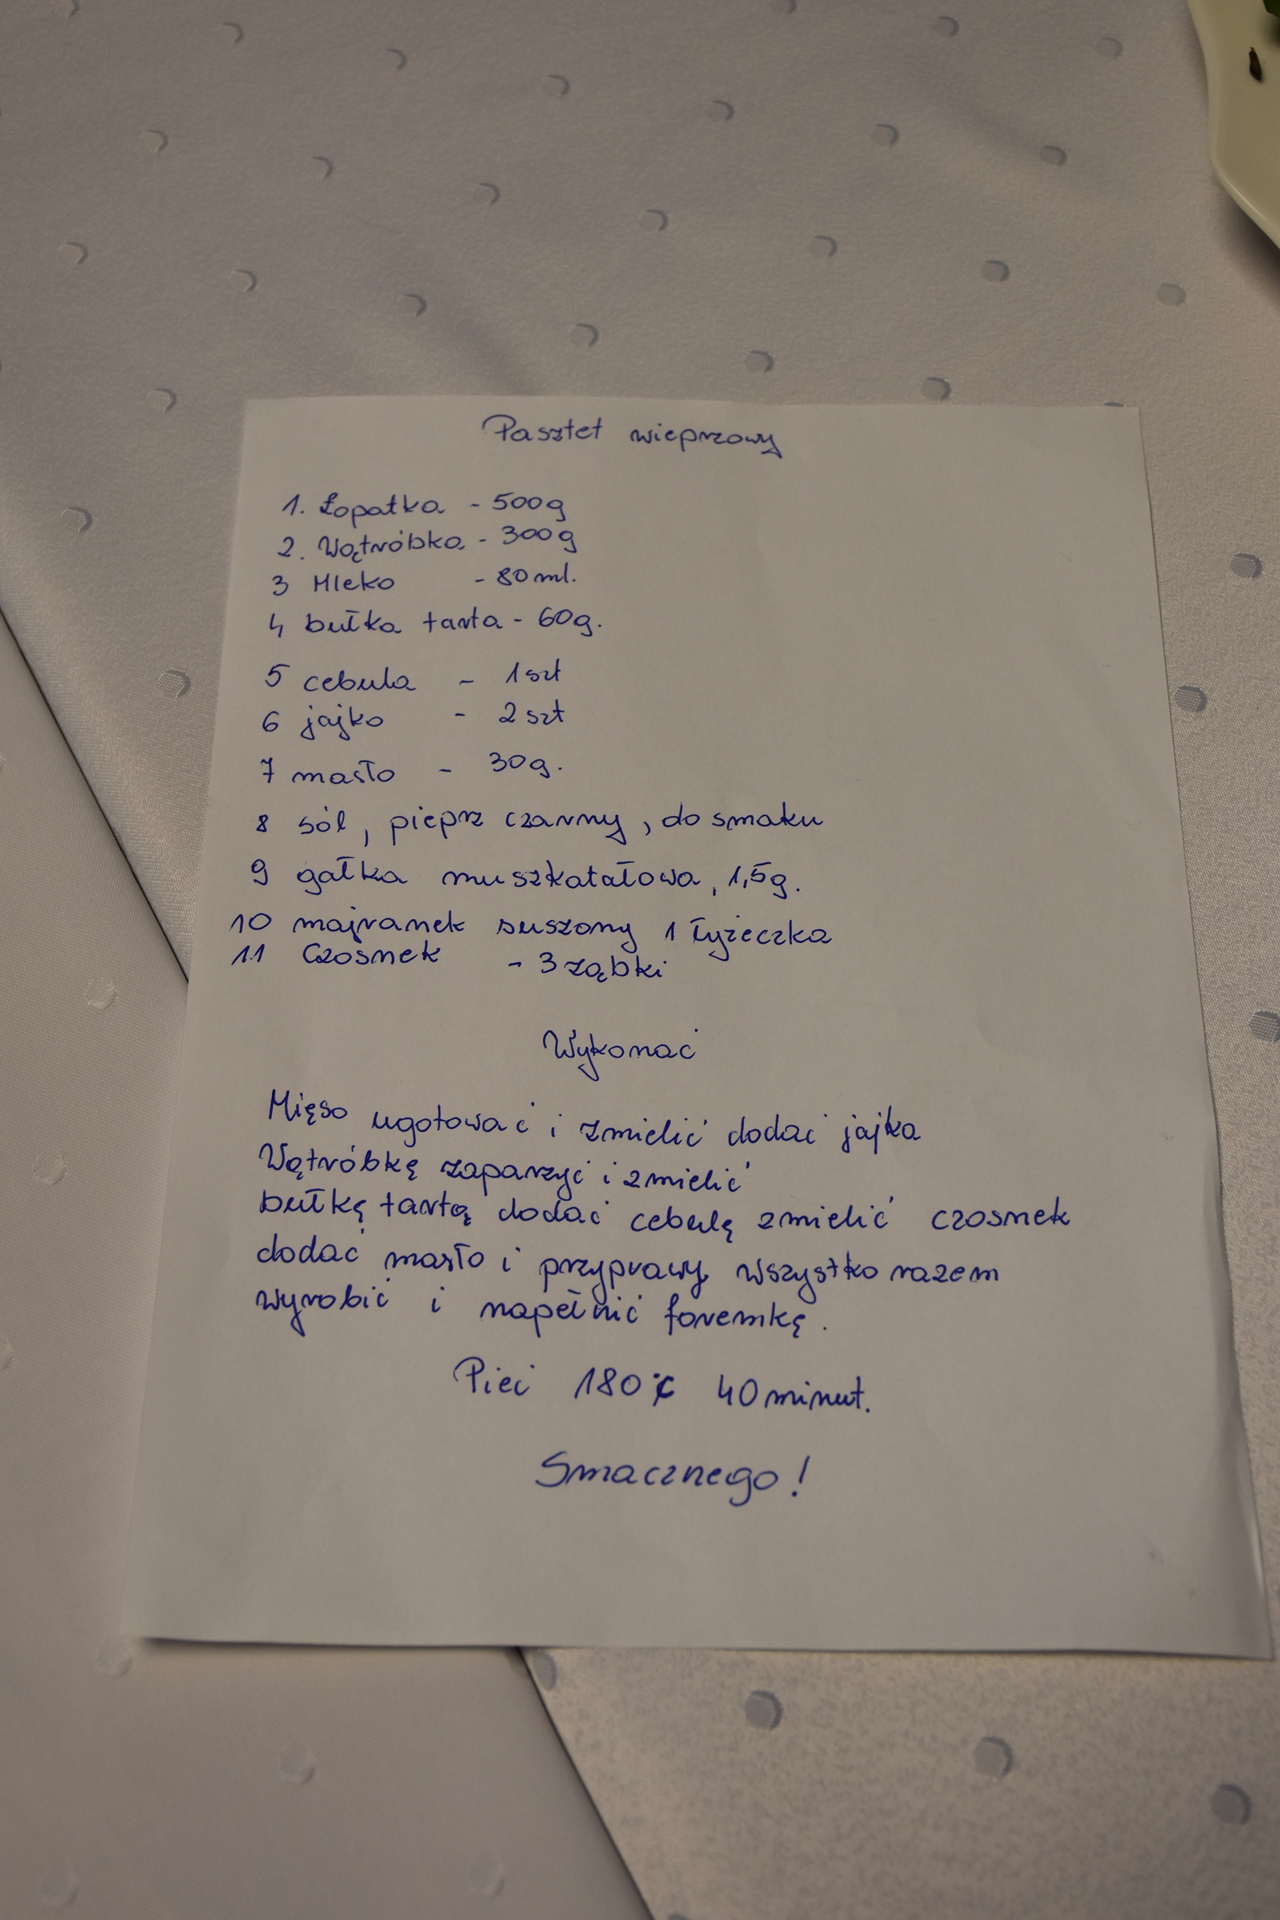 Pasztet wieprzowy
1. Łopatka - 500g
2. Wątróbka - 300g
3 Mleko - 80 ml.
4 bułka tarta - 60g.
5 cebula - 1 szt
6 jajko - 2 szt
7 masło - 30g.
8 sól, pieprz czarny, do smaku
9 gałka muszkatałowa, 1,5g.
10 majranek suszony 1 łyżeczka
11 Czosnek - 3 ząbki
Wykonać
Mięso ugotować i zmielić dodać jajka
Wątróbkę zaparzyć i zmielić
bułkę tartą dodać cebulę zmielić czosnek
dodać masło i przyprawy wszystko razem
wyrobić i napełnić foremkę.
Piec 180°C 40 minut.
Smacznego!